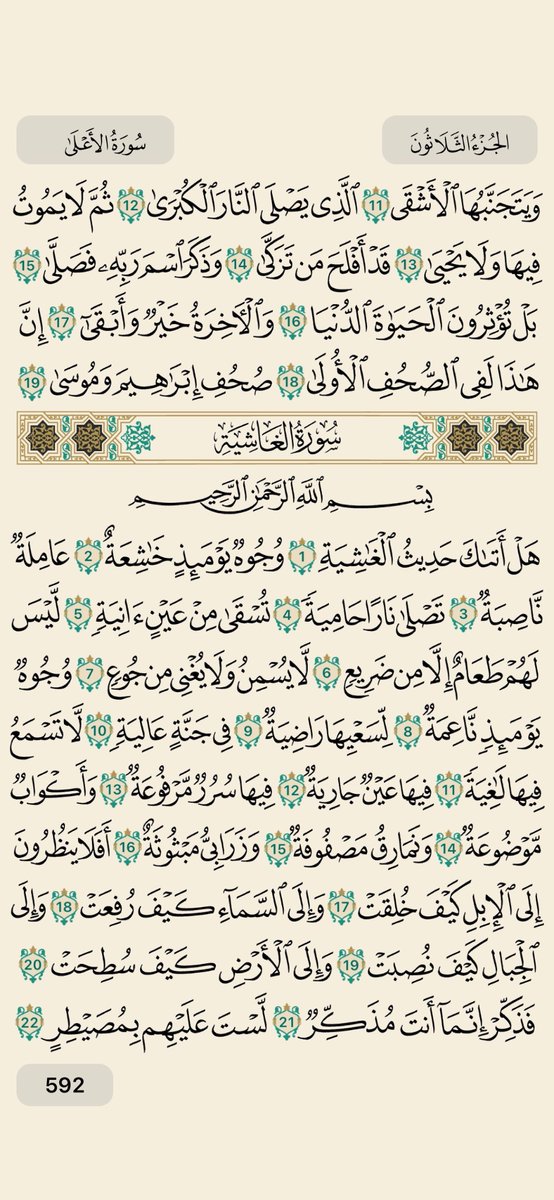 الجُزْءُ الثَّلَاثُونَ
سُورَةُ الأَعْلَىٰ
وَيَتَجَنَّبُهَا ٱلْأَشْقَى 11 ٱلَّذِى يَصْلَى ٱلنَّارَ ٱلْكُبْرَىٰ 12 ثُمَّ لَا يَمُوتُ
فِيهَا وَلَا يَحْيَىٰ 13 قَدْ أَفْلَحَ مَن تَزَكَّىٰ 14 وَذَكَرَ ٱسْمَ رَبِّهِۦ فَصَلَّىٰ 15
بَلْ تُؤْثِرُونَ ٱلْحَيَوٰةَ ٱلدُّنْيَا 16 وَٱلْـَٔاخِرَةُ خَيْرٌ وَأَبْقَىٰٓ 17 إِنَّ
هَٰذَا لَفِى ٱلصُّحُفِ ٱلْأُولَىٰ 18 صُحُفِ إِبْرَٰهِيمَ وَمُوسَىٰ 19
سُورَةُ الغَاشِيَةِ
بِسْمِ ٱللَّهِ ٱلرَّحْمَٰنِ ٱلرَّحِيمِ
هَلْ أَتَىٰكَ حَدِيثُ ٱلْغَٰشِيَةِ 1 وُجُوهٌ يَوْمَئِذٍ خَٰشِعَةٌ 2 عَامِلَةٌ
نَّاصِبَةٌ 3 تَصْلَىٰ نَارًا حَامِيَةً 4 تُسْقَىٰ مِنْ عَيْنٍ ءَانِيَةٍ 5 لَّيْسَ
لَهُمْ طَعَامٌ إِلَّا مِن ضَرِيعٍ 6 لَّا يُسْمِنُ وَلَا يُغْنِى مِن جُوعٍ 7 وُجُوهٌ
يَوْمَئِذٍ نَّاعِمَةٌ 8 لِّسَعْيِهَا رَاضِيَةٌ 9 فِى جَنَّةٍ عَالِيَةٍ 10 لَّا تَسْمَعُ
فِيهَا لَٰغِيَةً 11 فِيهَا عَيْنٌ جَارِيَةٌ 12 فِيهَا سُرُرٌ مَّرْفُوعَةٌ 13 وَأَكْوَابٌ
مَّوْضُوعَةٌ 14 وَنَمَارِقُ مَصْفُوفَةٌ 15 وَزَرَابِىُّ مَبْثُوثَةٌ 16 أَفَلَا يَنظُرُونَ
إِلَى ٱلْإِبِلِ كَيْفَ خُلِقَتْ 17 وَإِلَى ٱلسَّمَآءِ كَيْفَ رُفِعَتْ 18 وَإِلَى
ٱلْجِبَالِ كَيْفَ نُصِبَتْ 19 وَإِلَى ٱلْأَرْضِ كَيْفَ سُطِحَتْ 20
فَذَكِّرْ إِنَّمَآ أَنتَ مُذَكِّرٌ 21 لَّسْتَ عَلَيْهِم بِمُصَيْطِرٍ 22
592